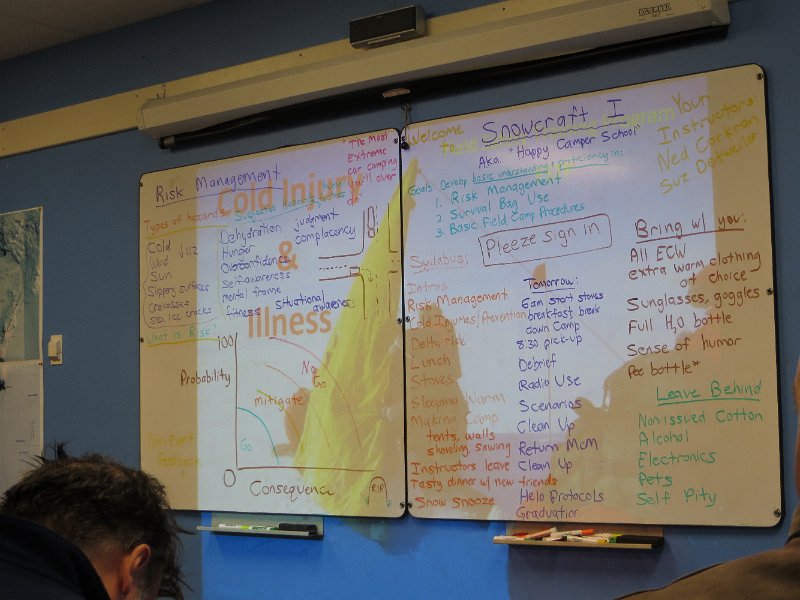 DA-LITE
Risk Management
"The Most
Extreme
car camping
you'll ever
do"
Cold Injury
&
Illness
Types of hazards
Subjective
Cold
Wind
Sun
Slippery surfaces
Crevasses
Sea ice cracks
Dehydration
Hunger
Overconfidence
self-awareness
mental frame
fitness
judgment
complacency
situational
awareness
What is Risk?
100
Probability
No
Go
mitigate
Go
0
Consequence
RIP
Non Event
Feedback
Welcome
to
Snowcraft I
Aka. "Happy Camper School"
Goals: Develop basic understanding & proficiency in:
1. Risk Management
2. Survival Bag Use
3. Basic Field Camp Procedures
Pleeze sign in
Your
Instructors:
Ned Corkran
Suz Detweiler
Syllabus:
Intros
Risk Management
Cold Injuries/Prevention
Delta ride
Lunch
Stoves
Sleeping Warm
Making Camp
tents, walls
shoveling, sawing
Instructors leave
Tasty dinner w/ new friends
Snow Snooze
Tomorrow:
6am start stoves
breakfast, break
down Camp
8:30 pick-up
Debrief
Radio Use
Scenarios
Clean Up
Return McM
Clean Up
Helo Protocols
Graduation
Bring w/ you:
All ECW
extra warm clothing
of choice
Sunglasses, goggles
Full H₂O bottle
Sense of humor
Pee bottle*
Leave Behind
Non-issued Cotton
Alcohol
Electronics
Pets
Self Pity